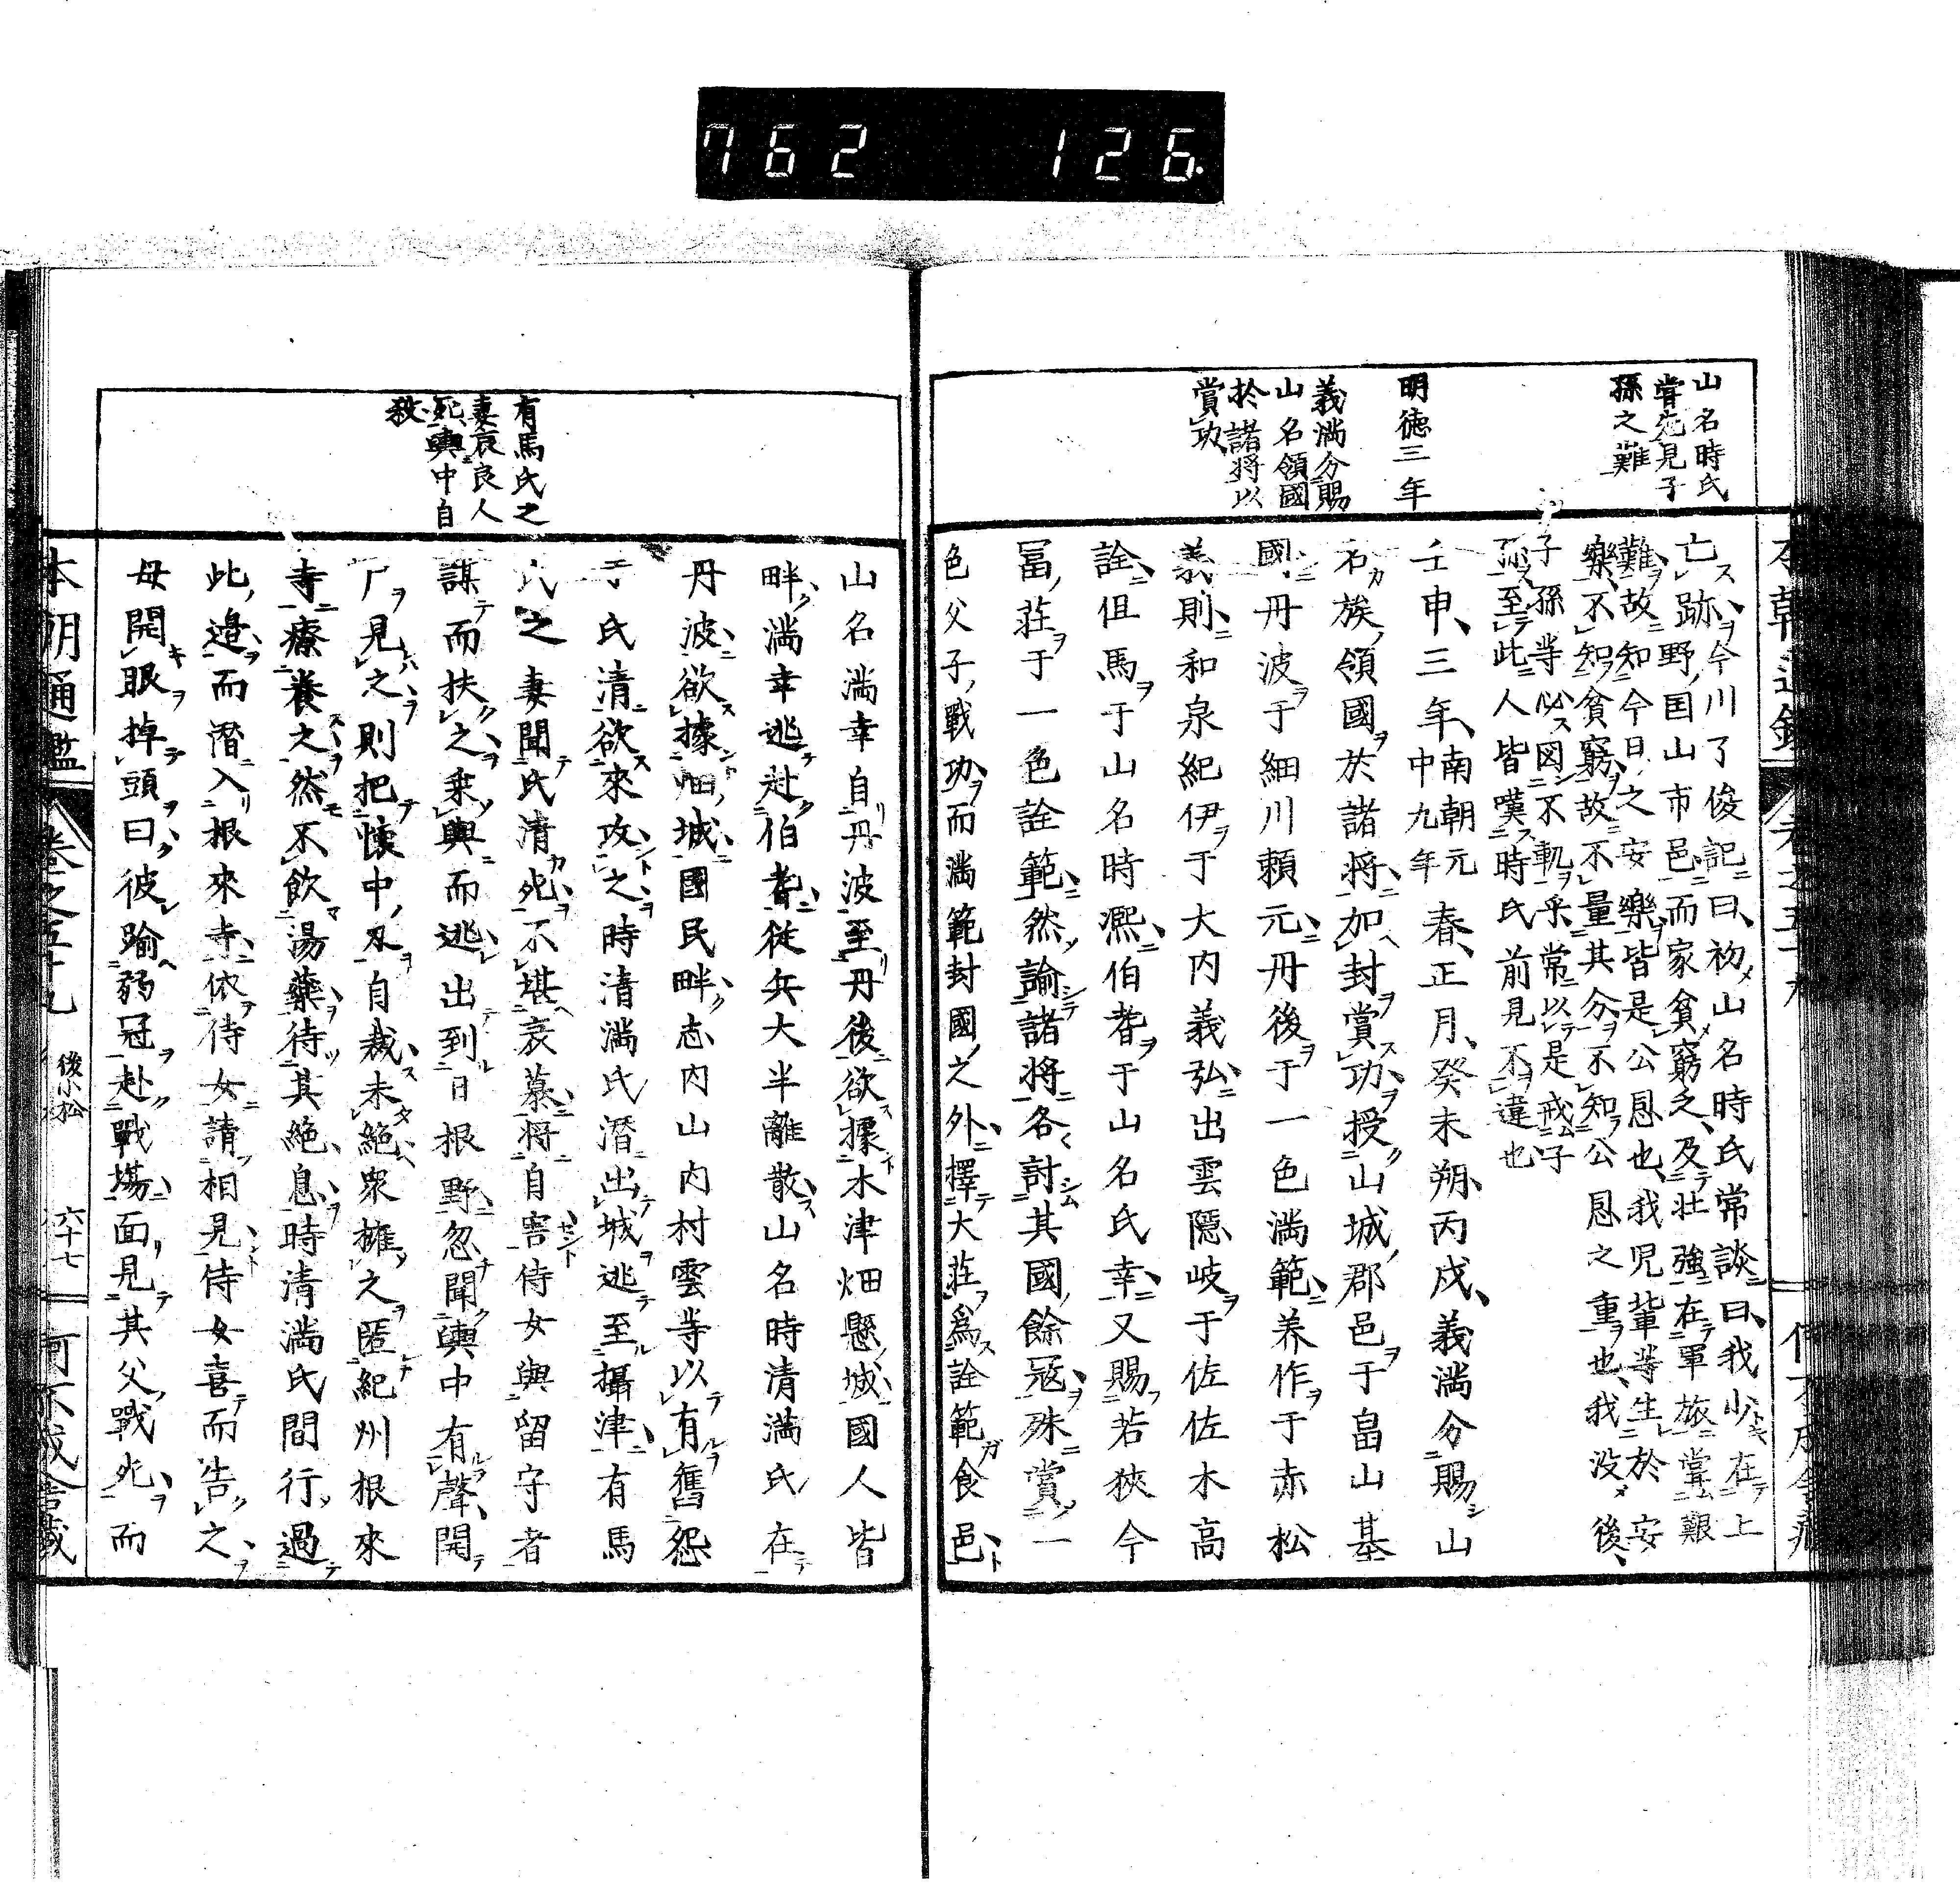 762 126
山名時氏
嘗先見子
孫之難
明徳三年
義満分賜
山名領國
於諸將以
賞功
亡跡今川了俊記曰初山名時氏常談曰我少在上
野国山市邑而家貧窮乏及壮強在軍旅嘗艱
難故知今日之安樂皆是公恩也我児輩等生於安
樂不知貧窮故不量其分不知公恩之重也我没後
子孫等必図不軌乎常以是戒子
孫至此人皆嘆時氏前見不違也
壬申三年南朝元中九年春正月癸未朔丙戌義満分賜山
名族領國於諸將加封賞功授山城郡邑于畠山基
國丹波于細川頼元丹後于一色満範美作于赤松
義則和泉紀伊于大内義弘出雲隠岐于佐佐木高
詮但馬于山名時凞伯耆于山名氏幸又賜若狹今
冨莊于一色詮範然諭諸將各討其國餘冦殊賞一
色父子戰功而満範封國之外擇大莊爲詮範食邑
有馬氏之
妻哀良人
死輿中自
殺
山名満幸自丹波至丹後欲據木津畑懸城國人皆
畔満幸逃赴伯耆従兵大半離散山名時清満氏在
丹波欲據畑城國民畔志内山内村雲等以有舊怨
于氏清欲來攻之時清満氏潜出城逃至攝津有馬
氏之妻聞氏清死不堪哀慕將自害侍女與留守者
謀而扶之乗輿而逃出到日根野忽聞輿中有聲開
戸見之則把懷中刃自裁未絶衆擁之匿紀州根來
寺療養之然不飲湯藥待其絶息時清満氏間行過
此邉而潜入根來寺依侍女請相見侍女喜而告之
母開眼掉頭曰彼踰弱冠赴戰塲面見其父戰死而
本朝通鑑 卷之五十九 後小松 六十七